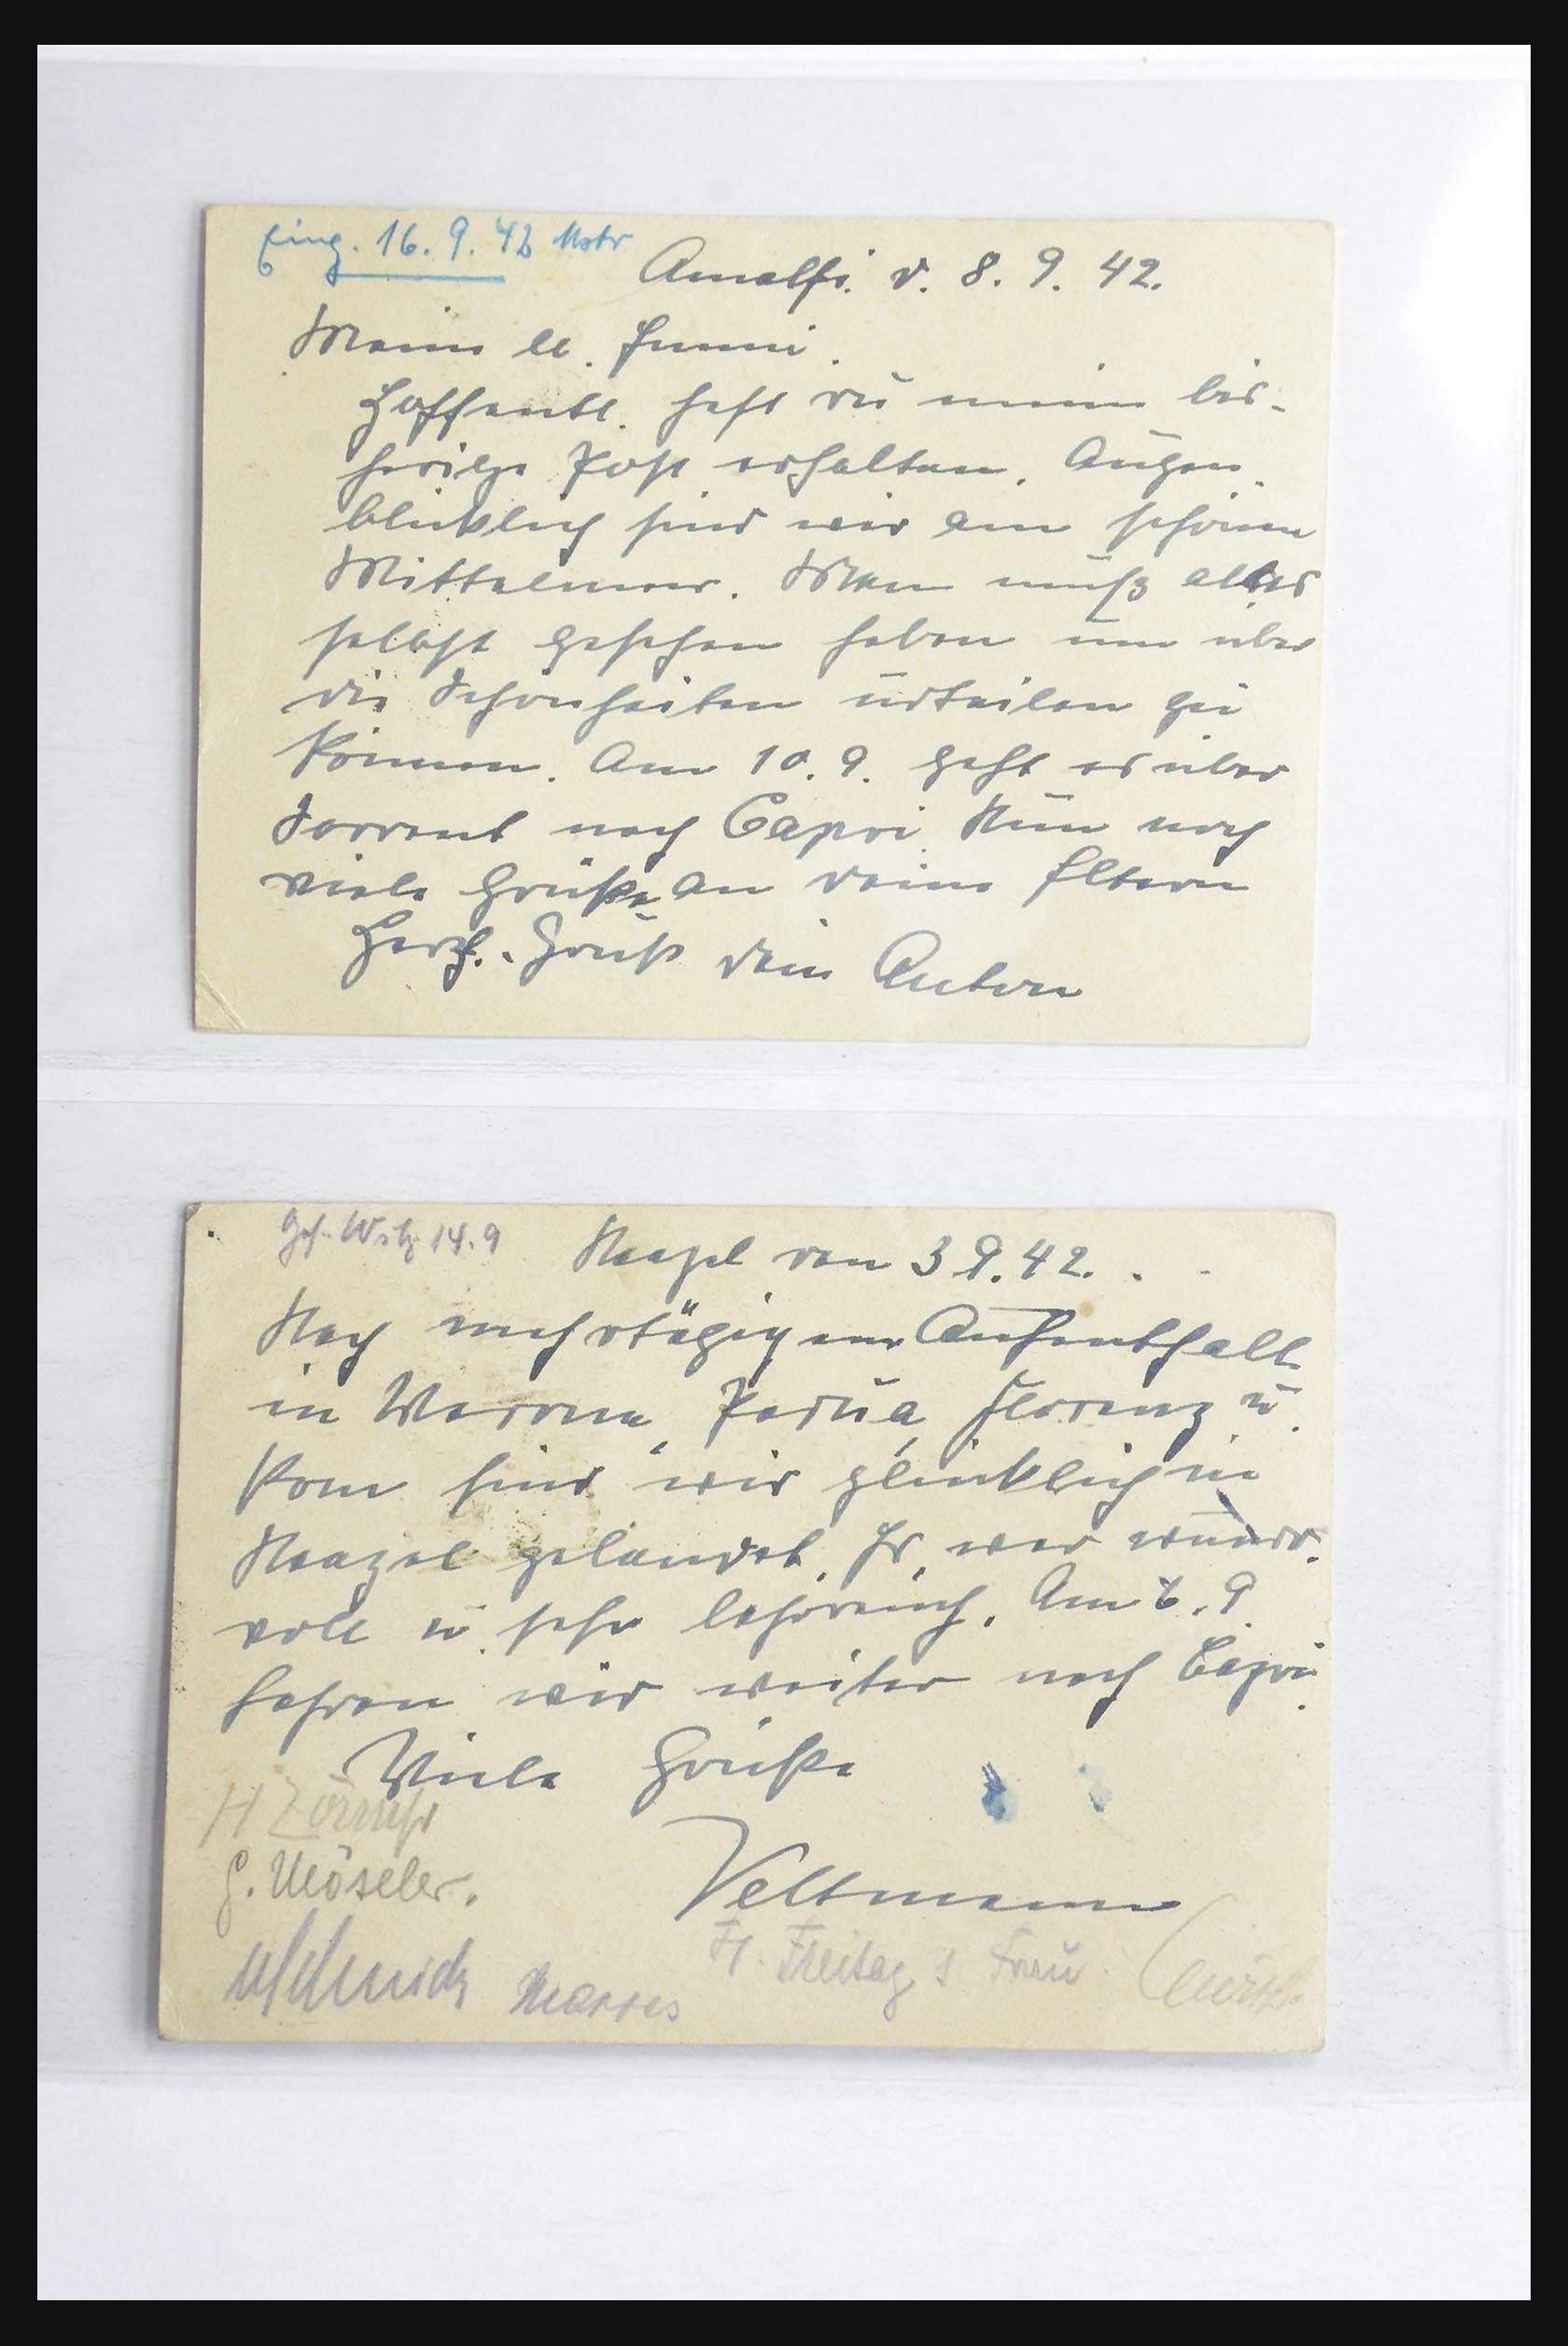 Eing. 16. 9. 42 Mstr
Amalfi. d. 8. 9. 42.
Meine lb. Henni.
Hoffentl. hast du meine bis-
herige Post erhalten. Augen
blicklich sind wir am schönen
Mittelmeer. Man muß alles
selbst gesehen haben um über
die Schönheiten urteilen zu
können. Am 10. 9. geht es über
Sorrent nach Capri. Nun noch
viele Grüße an deine Eltern
Herzl. Gruß dein Anton
14. 9
Neapel den 3 9. 42.
Nach mehrtägigem Aufenthalt
in Verona, Padua, Florenz u.
Rom sind wir glücklich in
Neapel gelandet. Es war wunder.
voll u. sehr lehrreich. Am 6. 9.
fahren wir weiter nach Capri.
Viele Grüße
H
G. Möseler.
Veltmann
Freitag & Frau